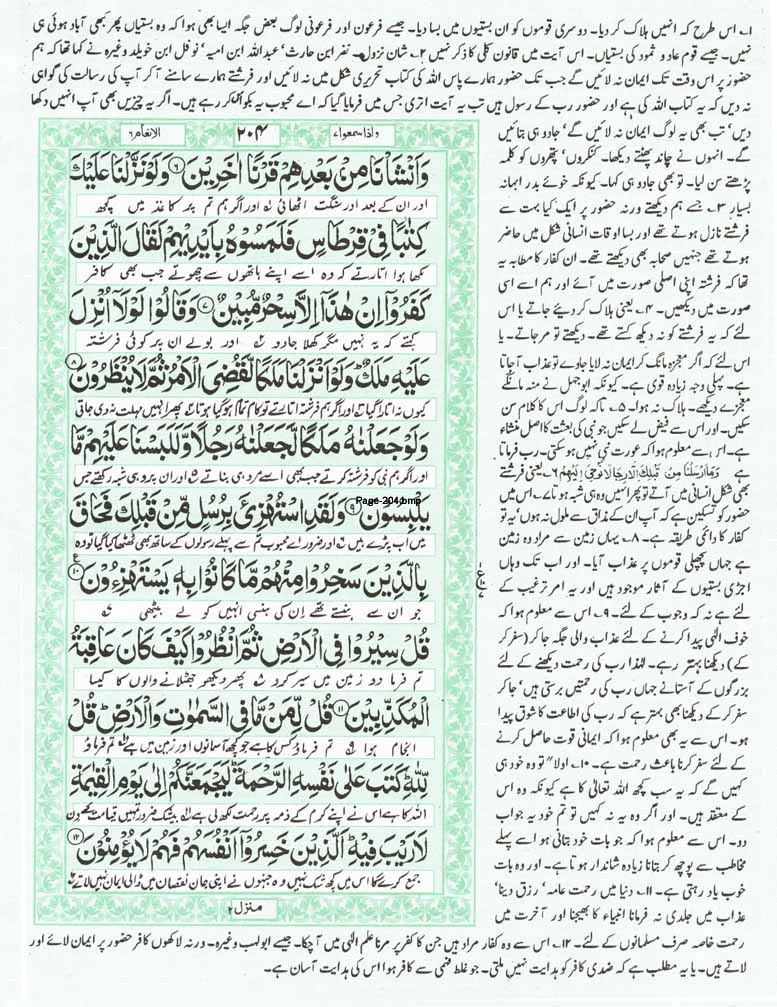 ۱۔ اس طرح کہ انہیں ہلاک کر دیا۔ دوسری قوموں کو ان بستیوں میں بسا دیا۔ جیسے فرعون اور فرعونی لوگ بعض جگہ ایسا بھی ہوا کہ وہ بستیاں پھر کبھی آباد ہوئی ہی
نہیں۔ جیسے قوم عاد و ثمود کی بستیاں۔ اس آیت میں قانون کلی کا ذکر نہیں ۲۔ شان نزول۔ نضر ابن حارث‘ عبداللہ ابن امیہ‘ نوفل ابن خویلد وغیرہ نے کہا تھا کہ ہم
حضور پر اس وقت تک ایمان نہ لائیں گے جب تک حضور ہمارے پاس اللہ کی کتاب تحریری شکل میں نہ لائیں اور فرشتے ہمارے سامنے آ کر آپ کی رسالت کی گواہی
نہ دیں کہ یہ کتاب اللہ کی ہے اور حضور رب کے رسول ہیں تب یہ آیت اتری جس میں فرمایا گیا کہ اے محبوب یہ بکواس کر رہے ہیں۔ اگر یہ چیزیں بھی آپ انہیں دکھا
دیں‘ تب بھی یہ لوگ ایمان نہ لائیں گے‘ جادو ہی بتائیں
گے۔ انہوں نے چاند پھٹتے دیکھا۔ کنکروں‘ پتھروں کو کلمہ
پڑھتے سن لیا۔ تو بھی جادو ہی کہا۔ کیونکہ خوئے بدرا بہانہ
بسیار ۳۔ جسے ہم دیکھتے ورنہ حضور پر ایک کیا بہت سے
فرشتے نازل ہوتے تھے اور بسا اوقات انسانی شکل میں حاضر
ہوتے تھے جنہیں صحابہ بھی دیکھتے تھے۔ ان کفار کا مطالبہ یہ
تھا کہ فرشتہ اپنی اصلی صورت میں آئے اور ہم اسے اسی
صورت میں دیکھیں۔ ۴۔ یعنی ہلاک کر دیئے جاتے یا اس
لئے کہ یہ فرشتے کو نہ دیکھ سکتے تھے۔ دیکھتے تو مر جاتے۔ یا
اس لئے کہ اگر معجزہ مانگ کر ایمان نہ لایا جاوے تو عذاب آ جاتا
ہے۔ پہلی وجہ زیادہ قوی ہے۔ کیونکہ ابو جہل نے منہ مانگے
معجزے دیکھے۔ ہلاک نہ ہوا۔ ۵۔ تاکہ لوگ اس کا کلام سن
سکیں۔ اور اس سے فیض لے سکیں جو نبی کی بعثت کا اصل منشاء
ہے۔ اس سے معلوم ہوا کہ عورت نبی نہیں ہو سکتی۔ رب فرماتا
ہے وَمَا اَرْسَلْنَا مِنْ قَبْلِكَ اِلَّا رِجَالًا نُّوْحِیْٓ اِلَیْهِمْ ۶۔ یعنی فرشتے
بھی شکل انسانی میں آتے تو پھر انہیں وہ ہی شبہ ہوتا ۷۔ اس میں
حضور کو تسکین ہے کہ آپ ان کے مذاق سے ملول نہ ہوں‘ یہ تو
کفار کا دائمی طریقہ ہے۔ ۸۔ یہاں زمین سے مراد وہ زمین
ہے جہاں پچھلی قوموں پر عذاب آیا۔ اور اب تک وہاں
اجڑی بستیوں کے آثار موجود ہیں اور یہ امر ترغیب کے
لئے ہے نہ کہ وجوب کے لئے۔ ۹۔ اس سے معلوم ہوا کہ
خوف الٰہی پیدا کرنے کے لئے عذاب والی جگہ جا کر (سفر کر
کے) دیکھنا بہتر ہے۔ لہٰذا رب کی رحمت دیکھنے کے لئے
بزرگوں کے آستانے جہاں رب کی رحمتیں برستی ہیں‘ جا کر
سفر کر کے دیکھنا بھی بہتر ہے کہ رب کی اطاعت کا شوق پیدا
ہو۔ اس سے یہ بھی معلوم ہوا کہ ایمانی قوت حاصل کرنے
کے لئے سفر کرنا باعث رحمت ہے۔ ۱۰۔ اولا" تو وہ خود ہی
کہیں گے کہ یہ سب کچھ اللہ تعالیٰ کا ہے کیونکہ وہ اس
کے معتقد ہیں۔ اور اگر وہ یہ نہ کہیں تو تم خود یہ جواب
دو۔ اس سے معلوم ہوا کہ جو بات خود بتانی ہو اسے پہلے
مخاطب سے پوچھ کر بتانا زیادہ شاندار ہوتا ہے۔ اور وہ بات
خوب یاد رہتی ہے۔ ۱۱۔ دنیا میں رحمت عامہ‘ رزق دینا‘
عذاب میں جلدی نہ فرمانا انبیاء کا بھیجنا اور آخرت میں
رحمت خاصہ صرف مسلمانوں کے لئے۔ ۱۲۔ اس سے وہ کفار مراد ہیں جن کا کفر پر مرنا علم الٰہی میں آ چکا۔ جیسے ابولہب وغیرہ۔ ورنہ لاکھوں کافر حضور پر ایمان لائے اور
لاتے ہیں۔ یا یہ مطلب ہے کہ ضدی کافر کو ہدایت نہیں ملتی۔ جو غلط فہمی سے کافر ہوا اس کی ہدایت آسان ہے۔
واذا سمعوا ۷ ۲۰۴ الانعام ۶
وَاَنْشَاْنَا مِنْۢ بَعْدِهِمْ قَرْنًا اٰخَرِیْنَ ۶ وَلَوْ نَزَّلْنَا عَلَیْكَ
اور ان کے بعد اور سنگت اٹھائی اور اگر ہم تم پر کاغذ میں کچھ
كِتٰبًا فِیْ قِرْطَاسٍ فَلَمَسُوْهُ بِاَیْدِیْهِمْ لَقَالَ الَّذِیْنَ
لکھا ہوا اتارتے کہ وہ اسے اپنے ہاتھوں سے چھوتے جب بھی کافر
كَفَرُوْۤا اِنْ هٰذَاۤ اِلَّا سِحْرٌ مُّبِیْنٌ ۷ وَقَالُوْا لَوْلَاۤ اُنْزِلَ
کہتے کہ یہ نہیں مگر کھلا جادو اور بولے ان پر کوئی فرشتہ
عَلَیْهِ مَلَكٌ ؕ وَلَوْ اَنْزَلْنَا مَلَكًا لَّقُضِیَ الْاَمْرُ ثُمَّ لَا یُنْظَرُوْنَ ۸
کیوں نہ اتارا گیا اور اگر ہم فرشتہ اتارتے تو کام تمام ہو گیا ہوتا پھر انہیں مہلت نہ دی جاتی
وَلَوْ جَعَلْنٰهُ مَلَكًا لَّجَعَلْنٰهُ رَجُلًا وَّلَلَبَسْنَا عَلَیْهِمْ مَّا
اور اگر ہم نبی کو فرشتہ کرتے جب بھی اسے مرد ہی بناتے اور ان پر وہی شبہ رکھتے جس
یَلْبِسُوْنَ ۹ وَلَقَدِ اسْتُهْزِئَ بِرُسُلٍ مِّنْ قَبْلِكَ فَحَاقَ
Page-204.bmp
میں اب پڑے ہیں اور ضرور اے محبوب تم سے پہلے رسولوں کے ساتھ بھی ٹھٹھا کیا گیا تو وہ
بِالَّذِیْنَ سَخِرُوْا مِنْهُمْ مَّا كَانُوْا بِهٖ یَسْتَهْزِءُوْنَ ۱۰
جو ان سے ہنستے تھے ان کی ہنسی انہیں کو لے بیٹھی
قُلْ سِیْرُوْا فِی الْاَرْضِ ثُمَّ انْظُرُوْا كَیْفَ كَانَ عَاقِبَةُ
تم فرما دو زمین میں سیر کرو پھر دیکھو جھٹلانے والوں کا کیسا
الْمُكَذِّبِیْنَ ۱۱ قُلْ لِّمَنْ مَّا فِی السَّمٰوٰتِ وَالْاَرْضِ ؕ قُلْ
انجام ہوا تم فرماؤ کس کا ہے جو کچھ آسمانوں اور زمین میں ہے تم فرماؤ
لِّلّٰهِ ؕ كَتَبَ عَلٰی نَفْسِهِ الرَّحْمَةَ ؕ لَیَجْمَعَنَّكُمْ اِلٰی یَوْمِ الْقِیٰمَةِ
اللہ کا ہے اس نے اپنے کرم کے ذمہ پر رحمت لکھ لی ہے بیشک ضرور تمہیں قیامت کے دن
لَا رَیْبَ فِیْهِ ؕ اَلَّذِیْنَ خَسِرُوْۤا اَنْفُسَهُمْ فَهُمْ لَا یُؤْمِنُوْنَ ۱۲
جمع کرے گا اس میں کچھ شک نہیں وہ جنہوں نے اپنی جان نقصان میں ڈالی ایمان نہیں لاتے
منزل ۲